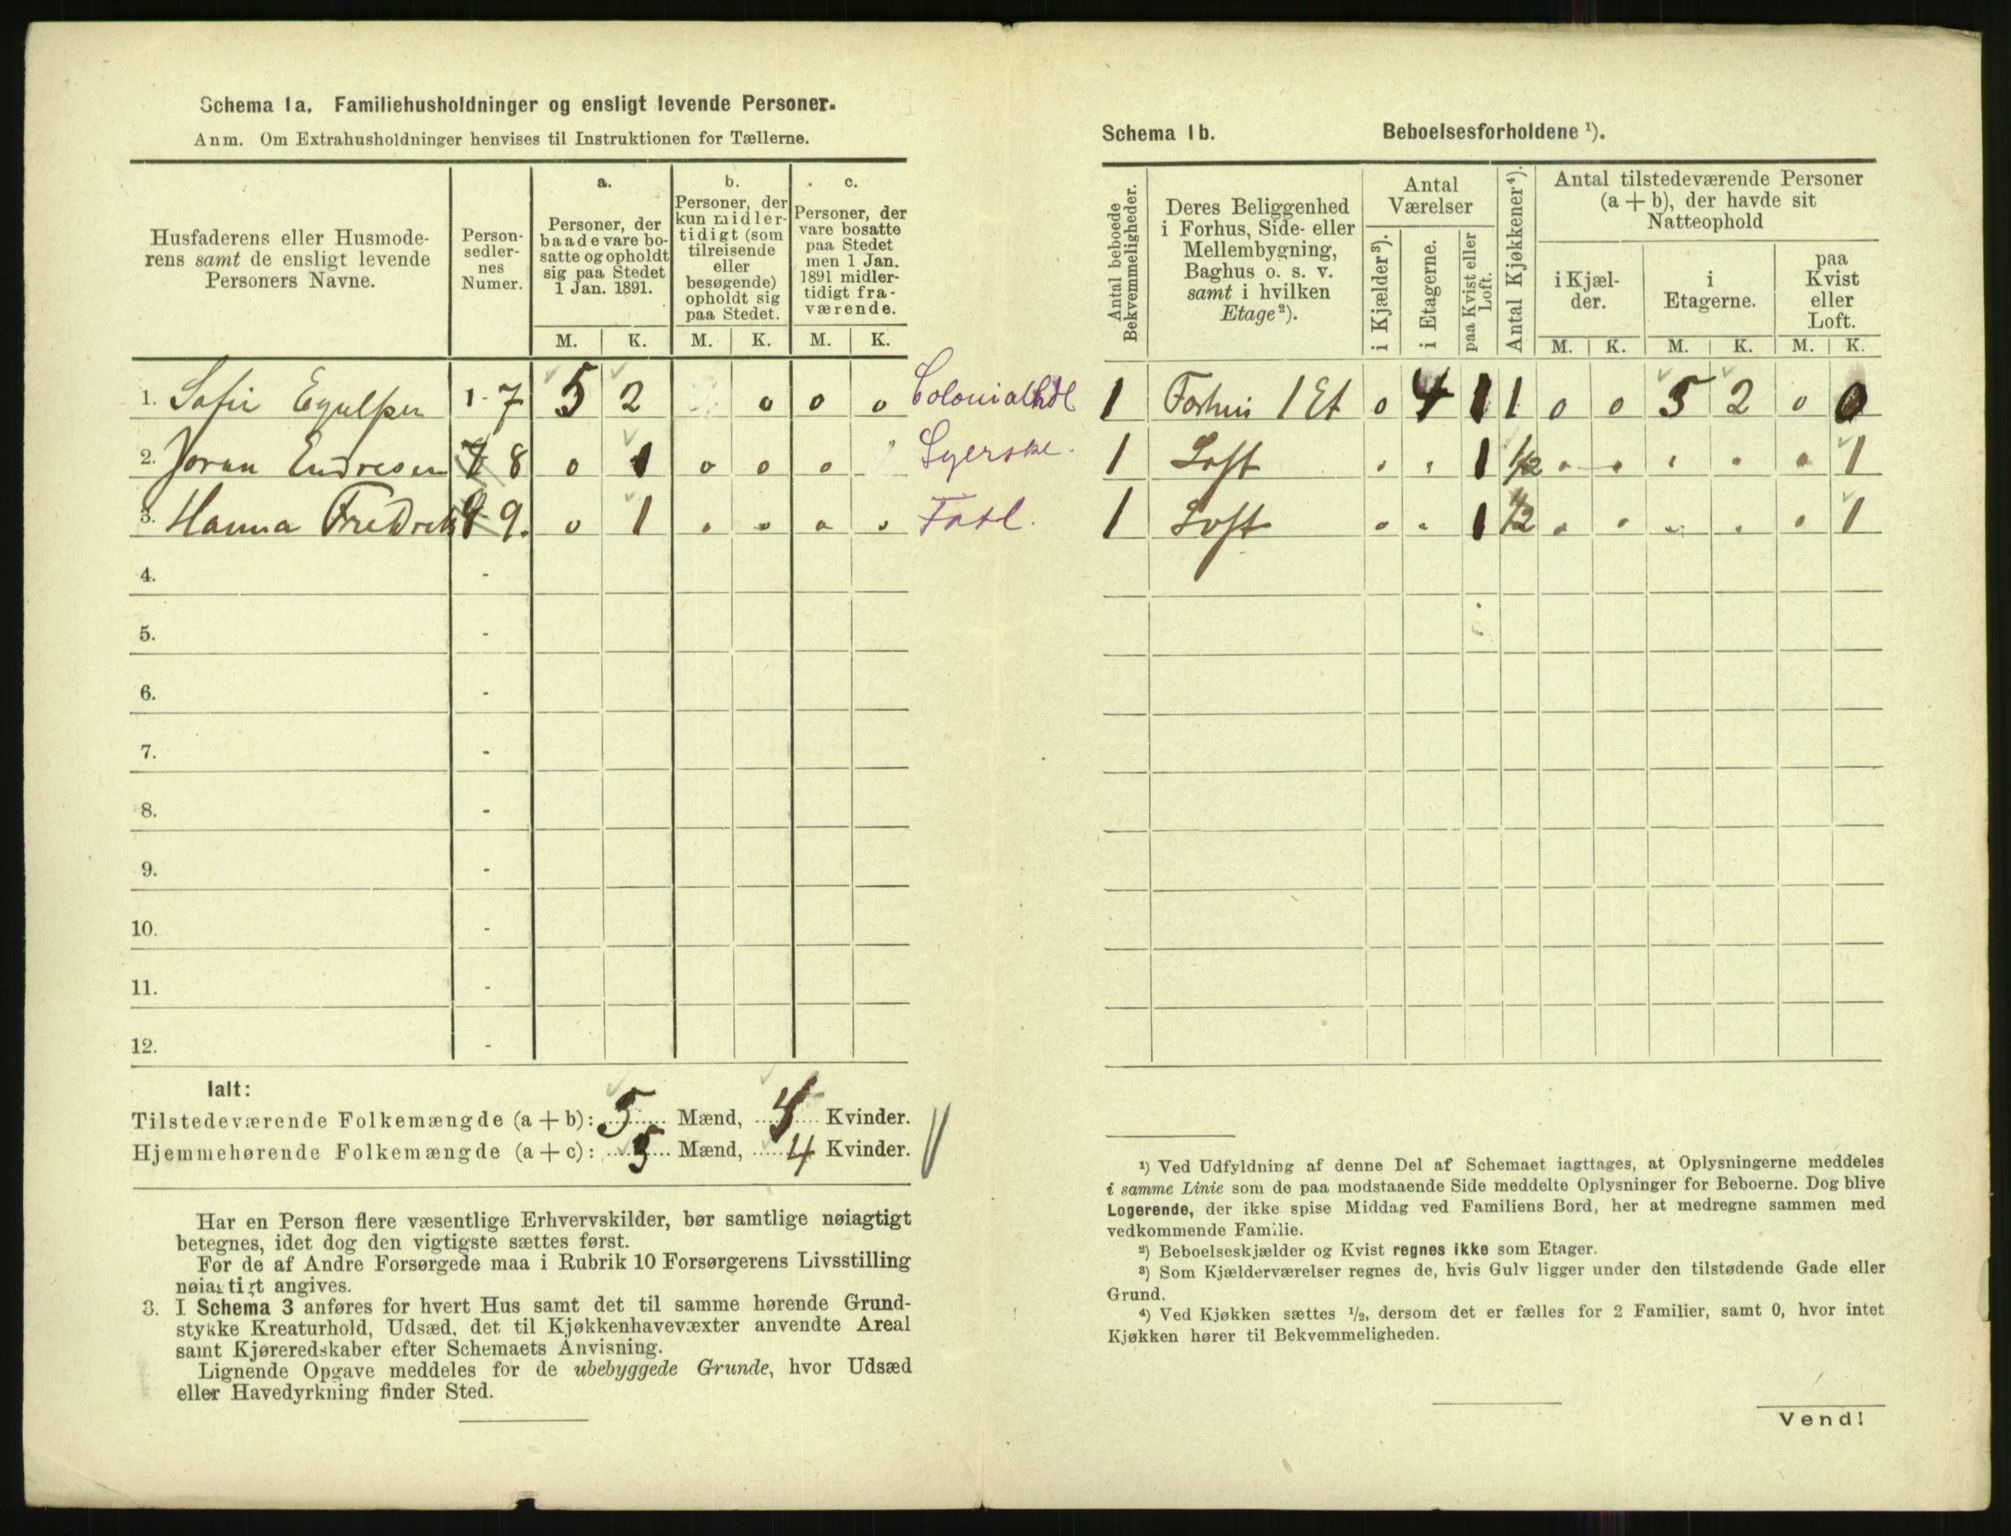 Schema 1a. Familiehusholdninger og ensligt levende Personer.
Anm. Om Extrahusholdninger henvises til Instruktionen for Tællerne.
Husfaderens eller Husmode-
rens samt de ensligt levende
Personers Navne.
Person-
sedler-
nes
Numer.
a.
Personer, der
baade vare bo-
satte og opholdt
sig paa Stedet
1 Jan. 1891.
b.
Personer, der
kun midler-
tidigt (som
tilreisende
eller
besøgende)
opholdt sig
paa Stedet.
c.
Personer, der
vare bosatte
paa Stedet
men 1 Jan.
1891 midler-
tidigt fra-
værende.
M. K. M. K. M. K.
1. Sofie 1-7 5 2 0 0 0 Colonialhdl
2. Joran Endresen 8 0 1 0 0 0 Syerske.
3. Hanna Fredrik 9. 0 1 0 0 0 0 Fatl.
4. -
5. -
6. -
7. -
8. -
9. -
10. -
11. -
12. -
Ialt:
Tilstedeværende Folkemængde (a + b): 5 Mænd, 4 Kvinder.
Hjemmehørende Folkemængde (a + c): 5 Mænd, 4 Kvinder.
Har en Person flere væsentlige Erhvervskilder, bør samtlige nøiagtigt
betegnes, idet dog den vigtigste sættes først.
For de af Andre Forsørgede maa i Rubrik 10 Forsørgerens Livsstilling
nøiagtigt angives.
3. I Schema 3 anføres for hvert Hus samt det til samme hørende Grund-
stykke Kreaturhold, Udsæd, det til Kjøkkenhavevæxter anvendte Areal
samt Kjøreredskaber efter Schemaets Anvisning.
Lignende Opgave meddeles for de ubebyggede Grunde, hvor Udsæd
eller Havedyrkning finder Sted.
Schema 1b. Beboelsesforholdene ¹).
Antal beboede
Bekvemmeligheder.
Deres Beliggenhed
i Forhus, Side- eller
Mellembygning,
Baghus o. s. v.
samt i hvilken
Etage²).
Antal
Værelser
i Kjælder³).
i Etagerne.
paa Kvist eller
Loft.
Antal Kjøkkener⁴).
Antal tilstedeværende Personer
(a + b), der havde sit
Natteophold
i Kjæl-
der.
i
Etagerne.
paa
Kvist
eller
Loft.
M. K. M. K. M. K.
1 Forhus 1 Et 0 4 1 1 0 0 5 2 0 0
1 Loft 0 0 1 1/2 0 0 0 0 0 1
1 Loft 0 0 1 1/2 0 0 0 0 0 1
¹) Ved Udfyldning af denne Del af Schemaet iagttages, at Oplysningerne meddeles
i samme Linie som de paa modstaaende Side meddelte Oplysninger for Beboerne. Dog blive
Logerende, der ikke spise Middag ved Familiens Bord, her at medregne sammen med
vedkommende Familie.
²) Beboelseskjælder og Kvist regnes ikke som Etager.
³) Som Kjælderværelser regnes de, hvis Gulv ligger under den tilstødende Gade eller
Grund.
⁴) Ved Kjøkken sættes ½, dersom det er fælles for 2 Familier, samt 0, hvor intet
Kjøkken hører til Bekvemmeligheden.
Vend!